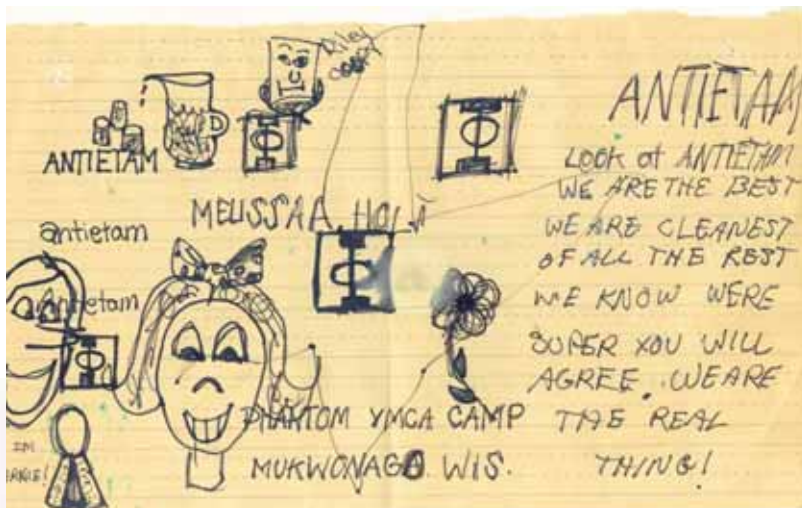 Riley
ANTIETAM
MELISSAA HOLA
antietam
Antietam
PHANTOM YMCA CAMP
MUKWONAGO WIS.
IM
ANTIETAM
LOOK at ANTIETAM
WE ARE THE BEST
WE ARE CLEANEST
OF ALL THE REST
WE KNOW WERE
SUPER YOU WILL
AGREE. WE ARE
THE REAL
THING!